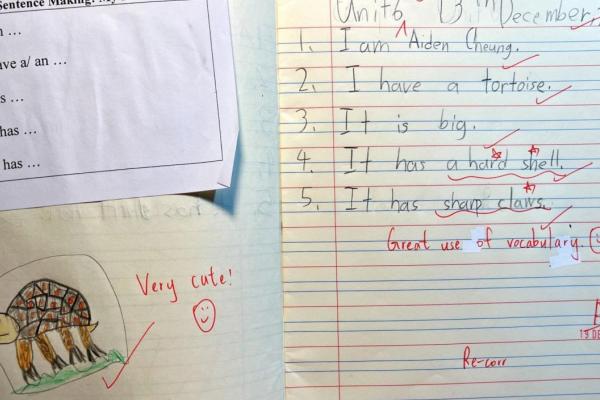 Sentence Making: My
...
ave a/ an ...
s ...
has ...
has ...
Very cute!
Unit6 13th December
1. I am Aiden Cheung.
2. I have a tortoise.
3. It is big.
4. It has a hard shell.
5. It has sharp claws.
Great use of vocabulary.
13 DE
Re-corr